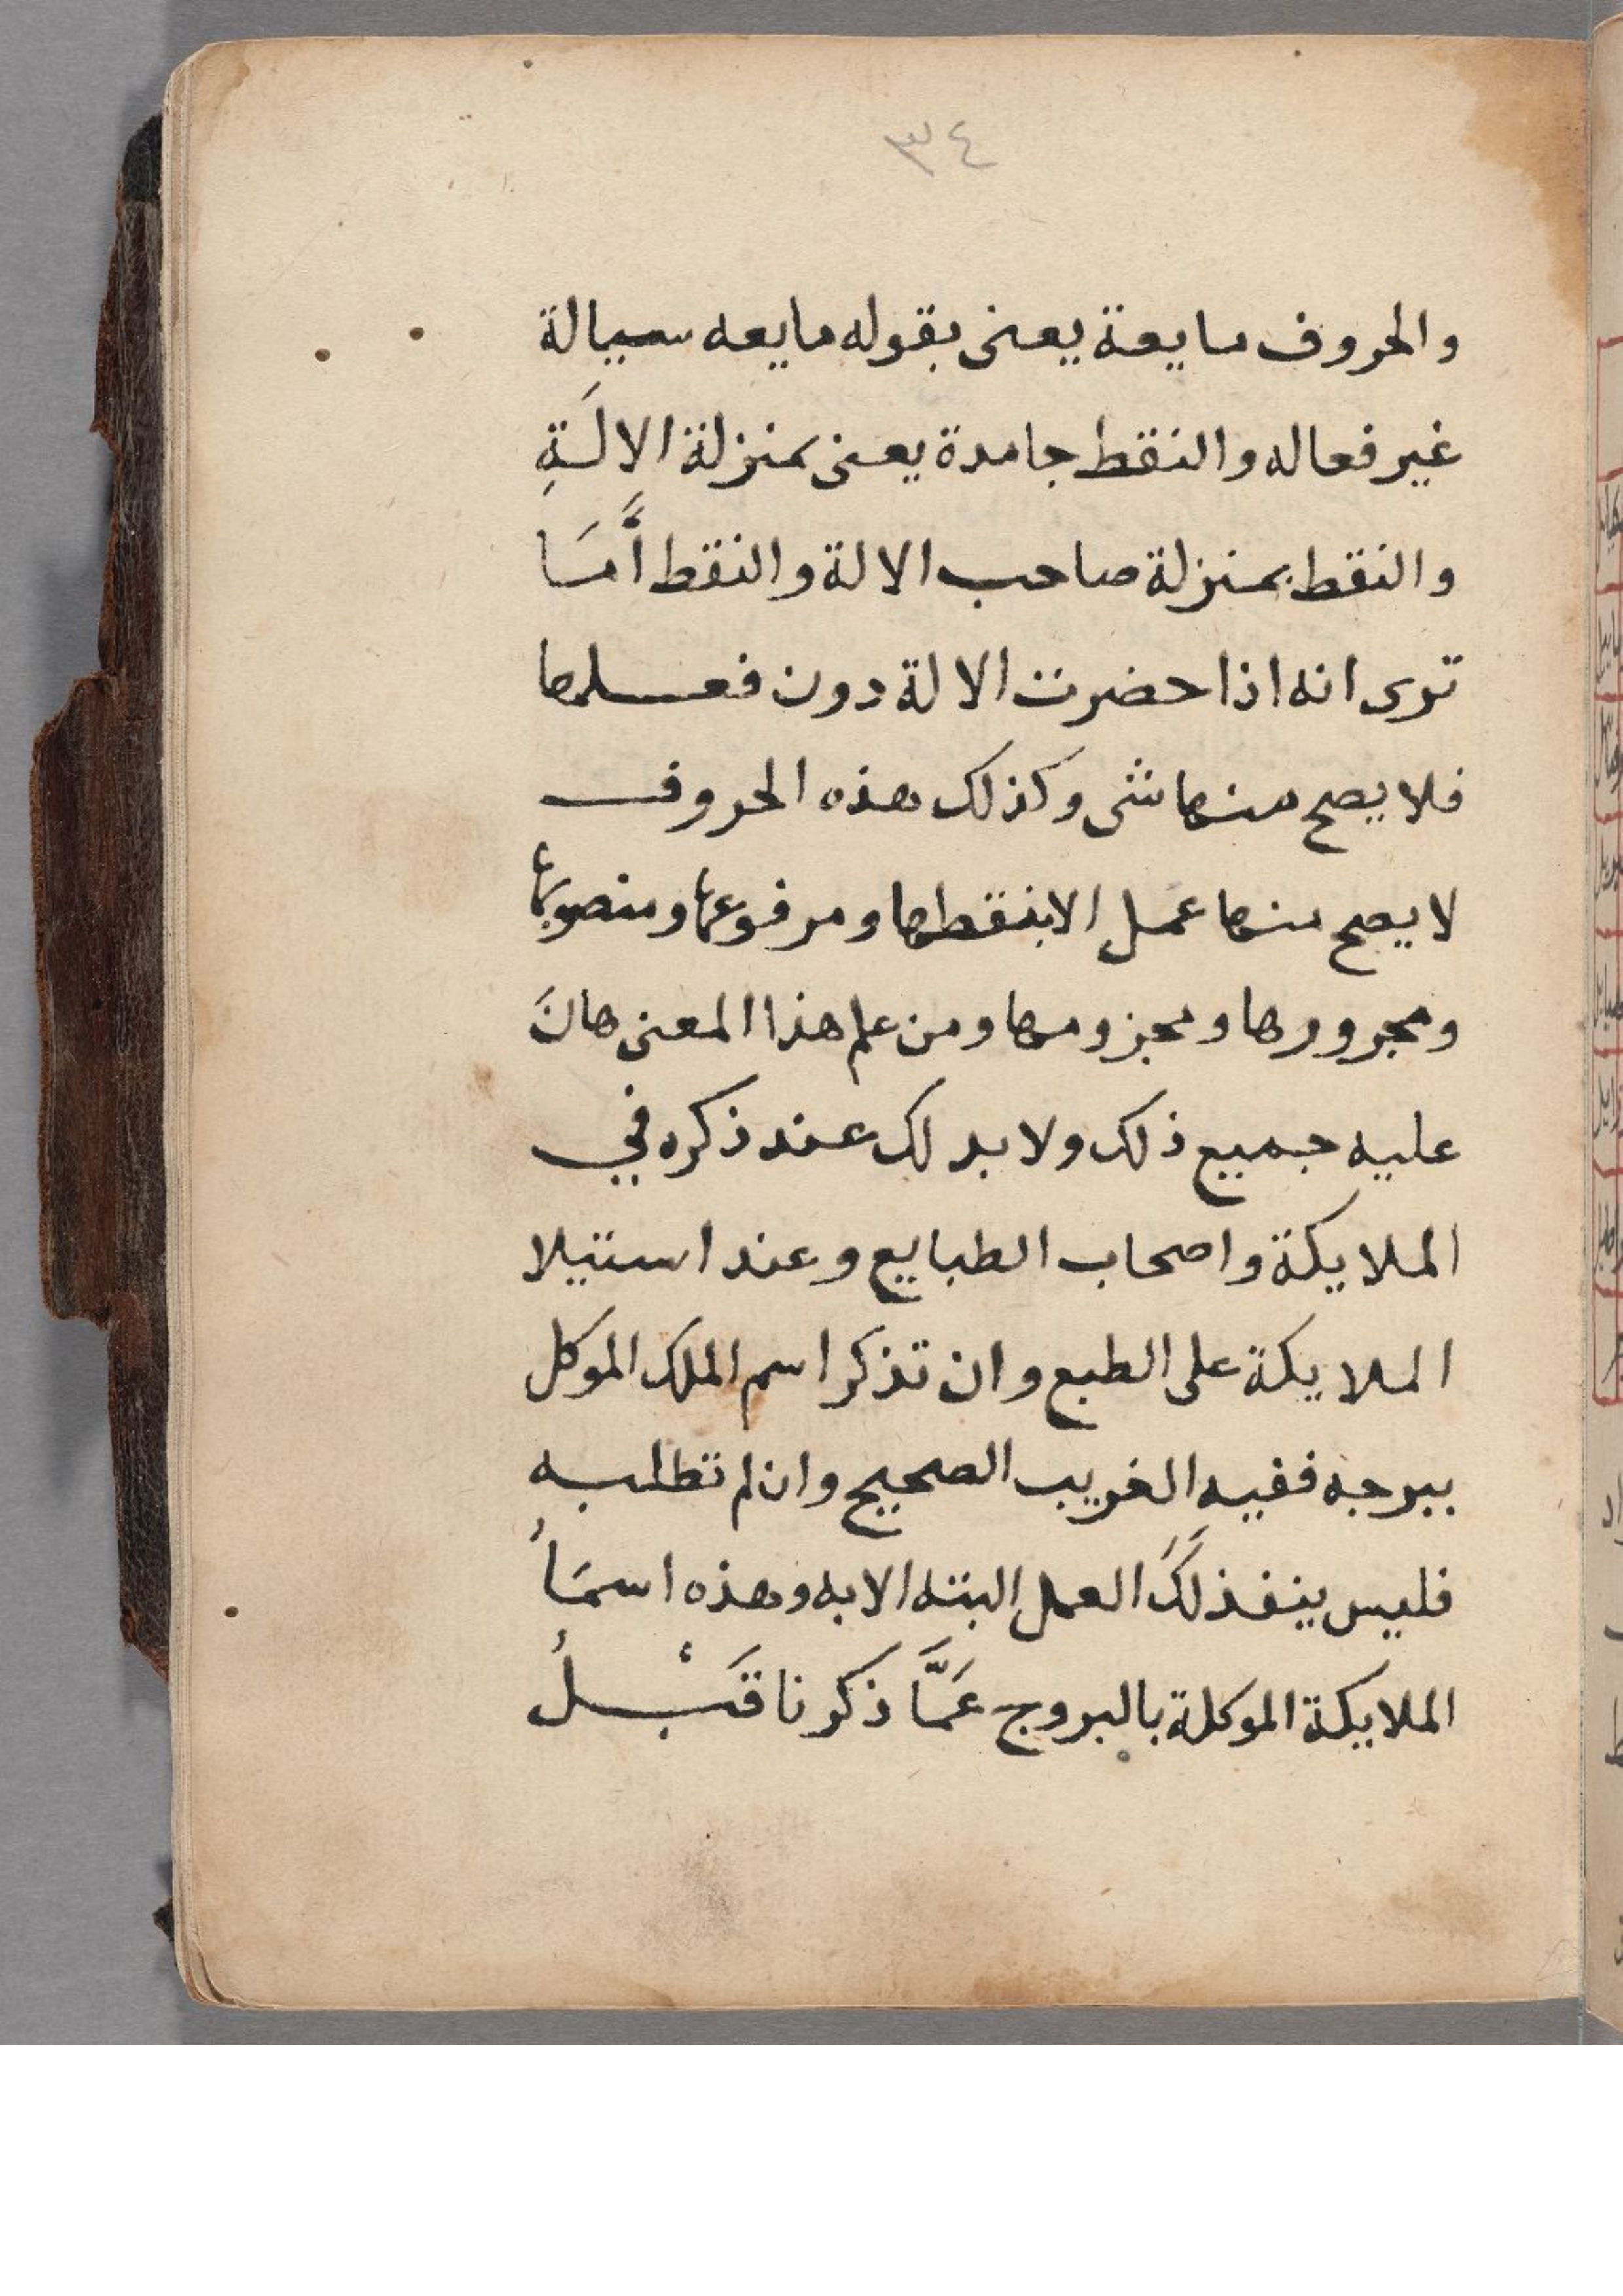 ٣٤
والحروف مايعة يعنى بقوله مايعه سيالة
غير فعاله والنقط جامدة يعنى بمنزلة الالَةِ
والنقط بمنزلة صاحب الالة والنقط أمَّا
ترى انه اذا حضرت الالة دون فعلها
فلا يصح منها شى وكذلك هذه الحروف
لا يصح منها عمل الا بنقطها ومرفوعها ومنصوبها
ومجرورها ومجزومها ومن علم هذا المعنى هانَ
عليه جميع ذلك ولا بد لك عند ذكره في
الملايكة واصحاب الطبايع وعند استيلا
الملايكة على الطبع وان تذكر اسم الملك الموكل
ببرجه ففيه الغريب الصحيح وان لم تطلبه
فليس ينفذ لَكَ العمل البته الا به وهذه اسمَاُ
الملايكة الموكلة بالبروج عَمَّا ذكرنا قَبْلُ